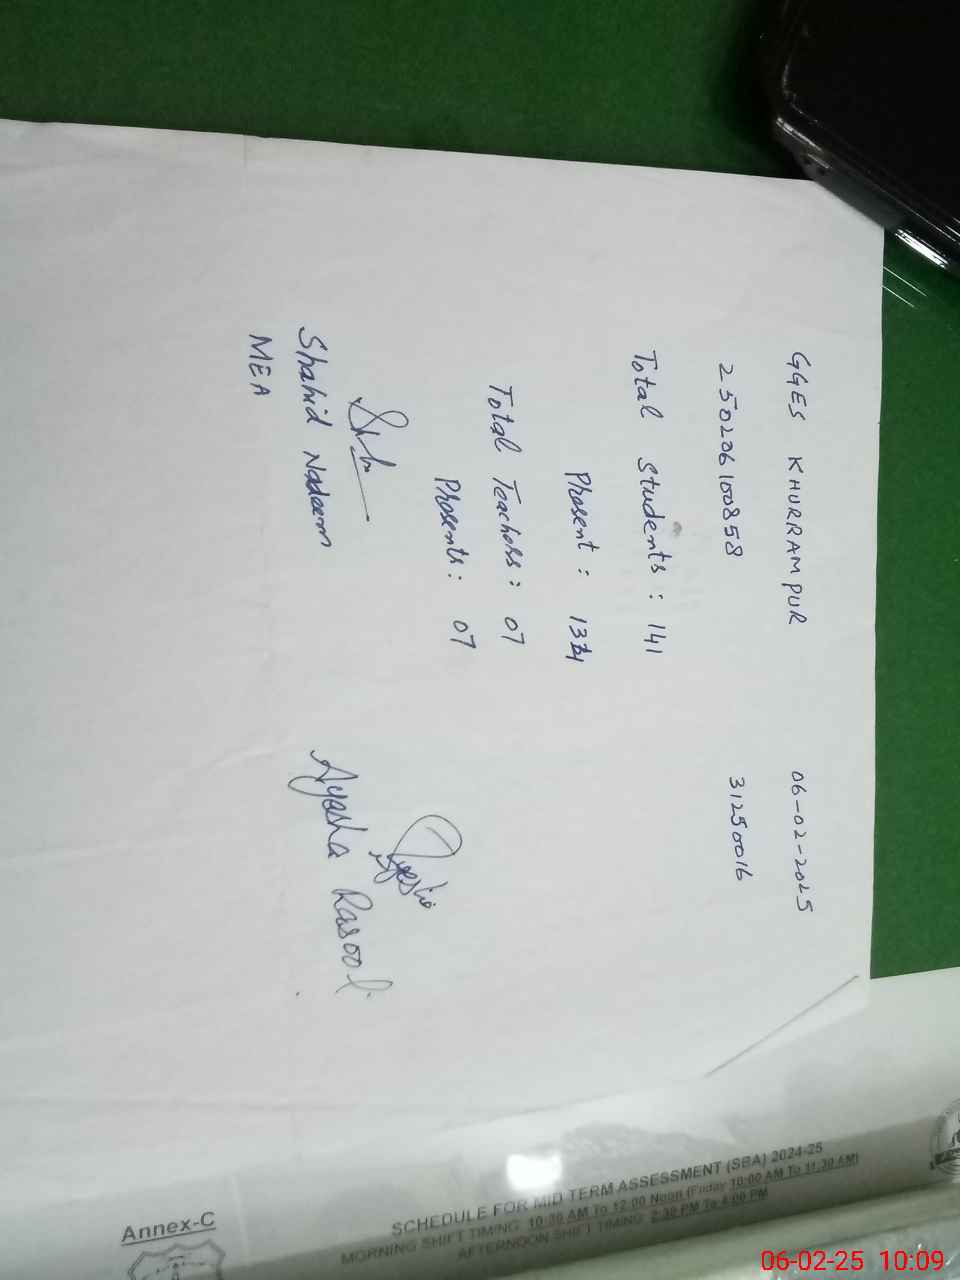 GGES KHURRAMPUR 06-02-2025
250206100858 31250016
Total Students : 141
Present : 134
Total Teachers : 07
Presents : 07
Shahid Nadeem
MEA
Ayesha
Ayesha Rasool
SCHEDULE FOR MID TERM ASSESSMENT (SBA) 2024-25
MORNING SHIFT TIMING: 10:30 AM To 12:00 Noon (Friday 10:00 AM To 11:30 AM)
AFTERNOON SHIFT TIMING: 2:30 PM To 4:00 PM
Annex-C
06-02-25 10:09